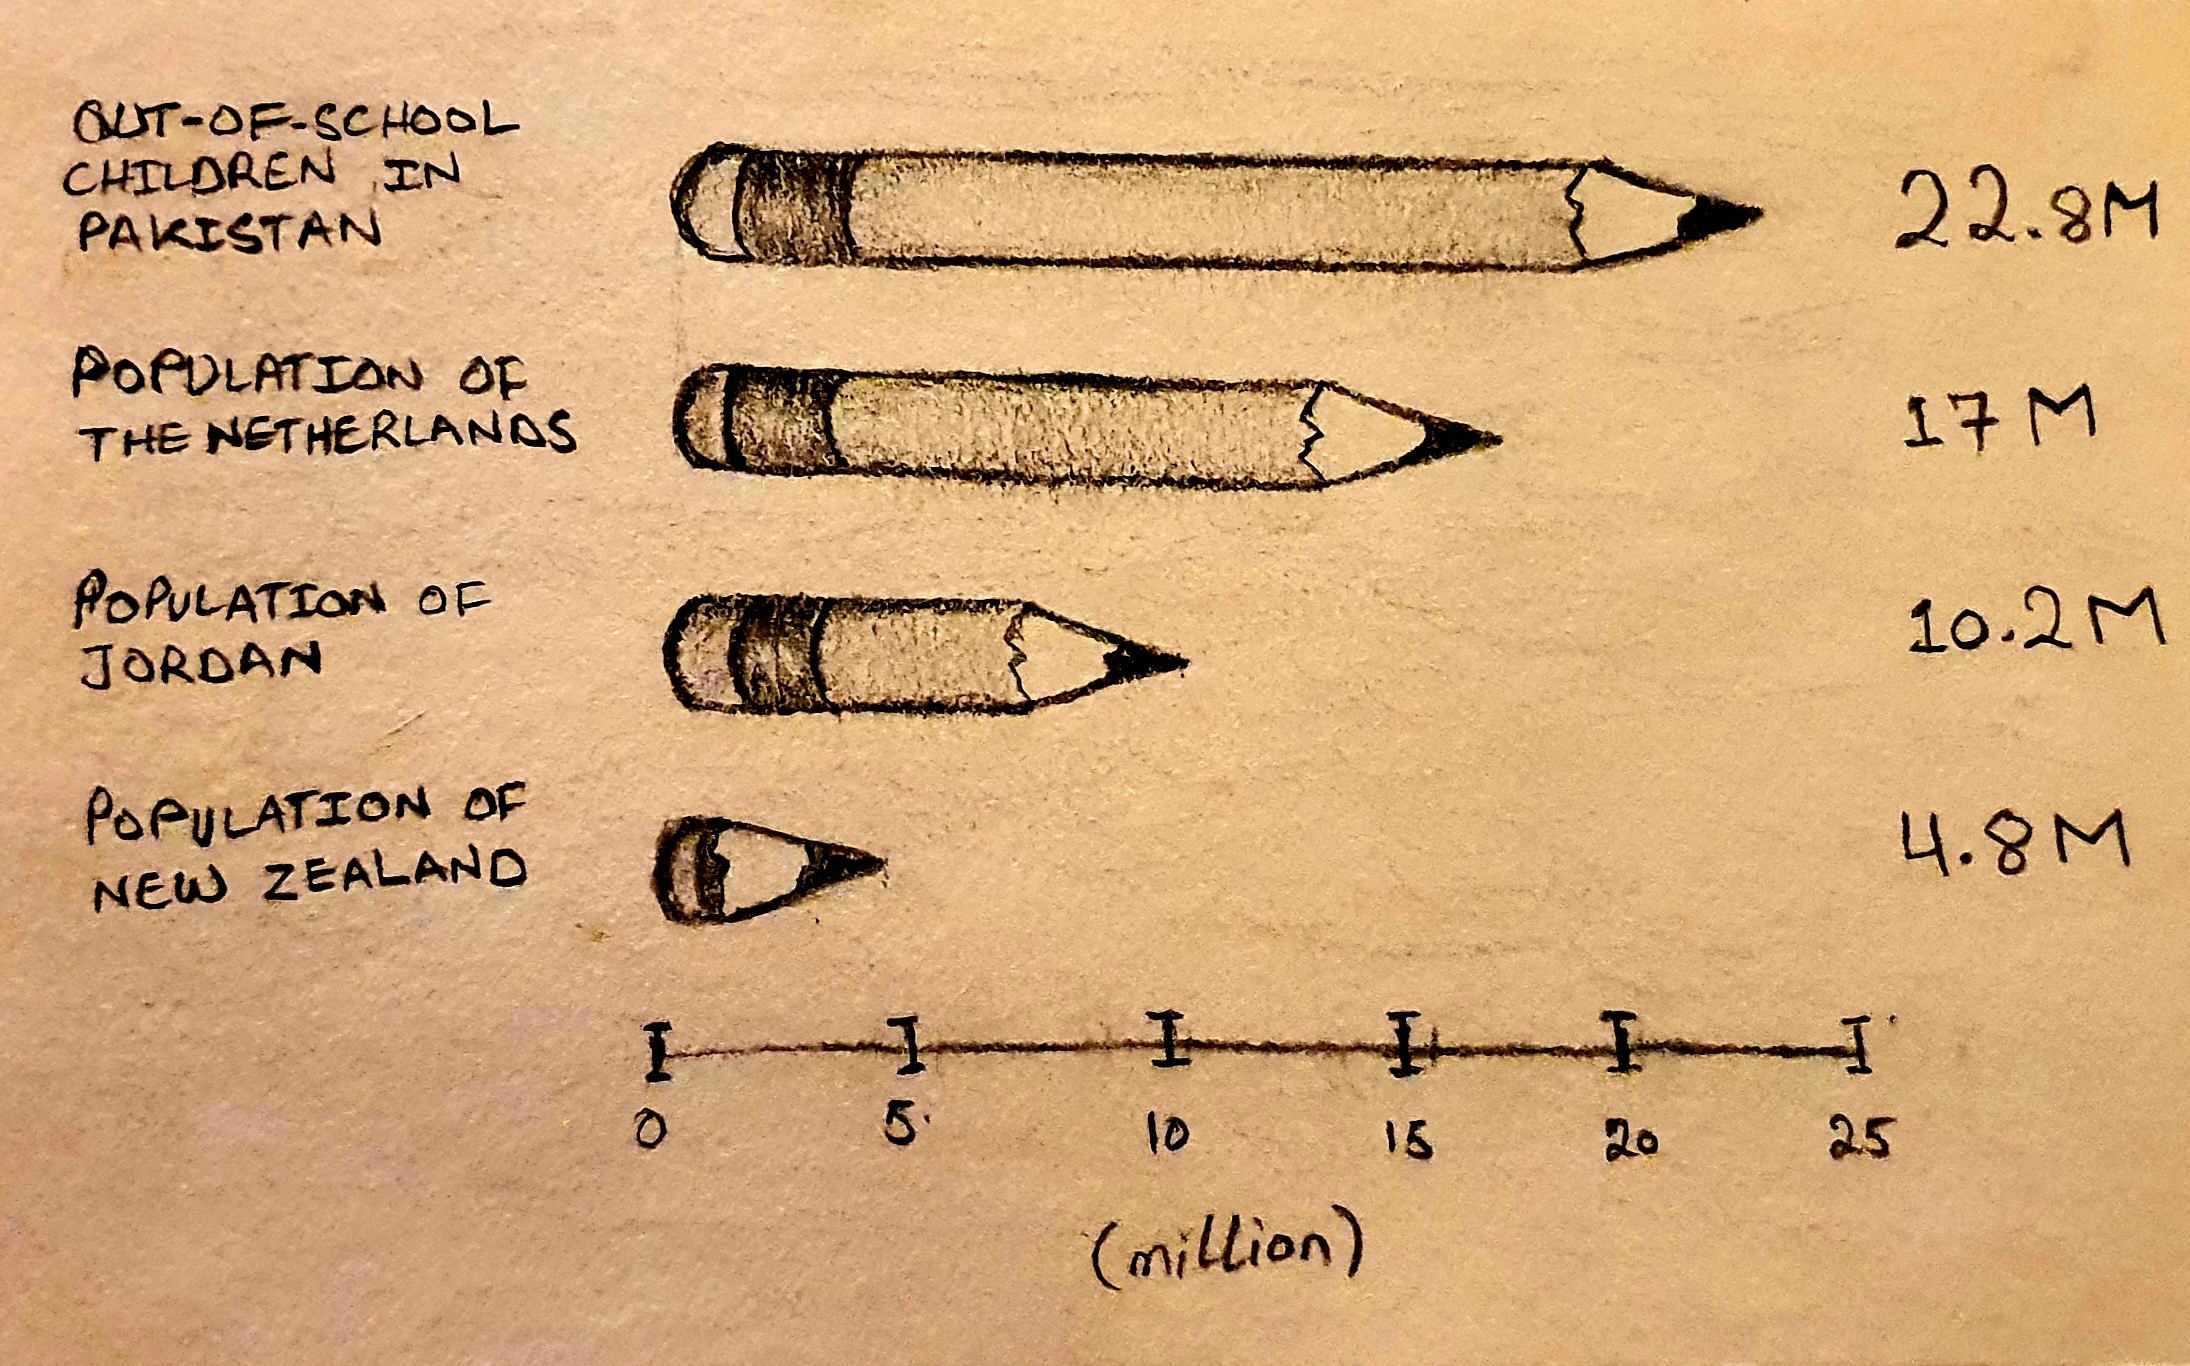 OUT-OF-SCHOOL
CHILDREN IN
PAKISTAN
22.8M
POPULATION OF
THE NETHERLANDS
17 M
POPULATION OF
JORDAN
10.2M
POPULATION OF
NEW ZEALAND
4.8M
0 5 10 15 20 25
(million)